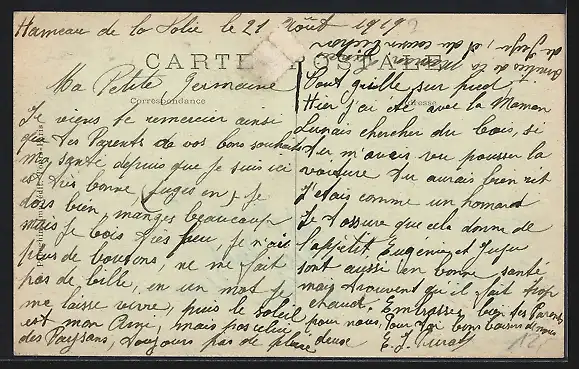 Hameau de la Folie le 21 Août 1919
CARTE POSTALE
Correspondance
Adresse
Ma Petite Germaine
Je viens te remercier ainsi
que tes Parents de vos bons souhaits
ma santé depuis que je suis ici
est très bonne, juges en, je
dors bien, manges beaucoup
mais je bois très peu, je n'ai
plus de boutons, ne me fait
pas de bille, en un mot je
me laisse vivre, puis le soleil
est mon Ami, mais pas celui
des Paysans, toujours pas de pluie
Tout grille sur pied,
Hier j'ai été avec la Maman
chercher du bois, si
tu m'avais vu pousser la
voiture tu aurais bien rit
J'étais comme un homard
Je t'assure que cela donne de
l'appétit. Eugénie et
sont aussi en bonne santé
mais trouvent qu'il fait trop
chaud. Embrasses bien tes Parents
pour nous, Pour toi bons baisers de nous
deux E. J.
Amitiés de la
de et du